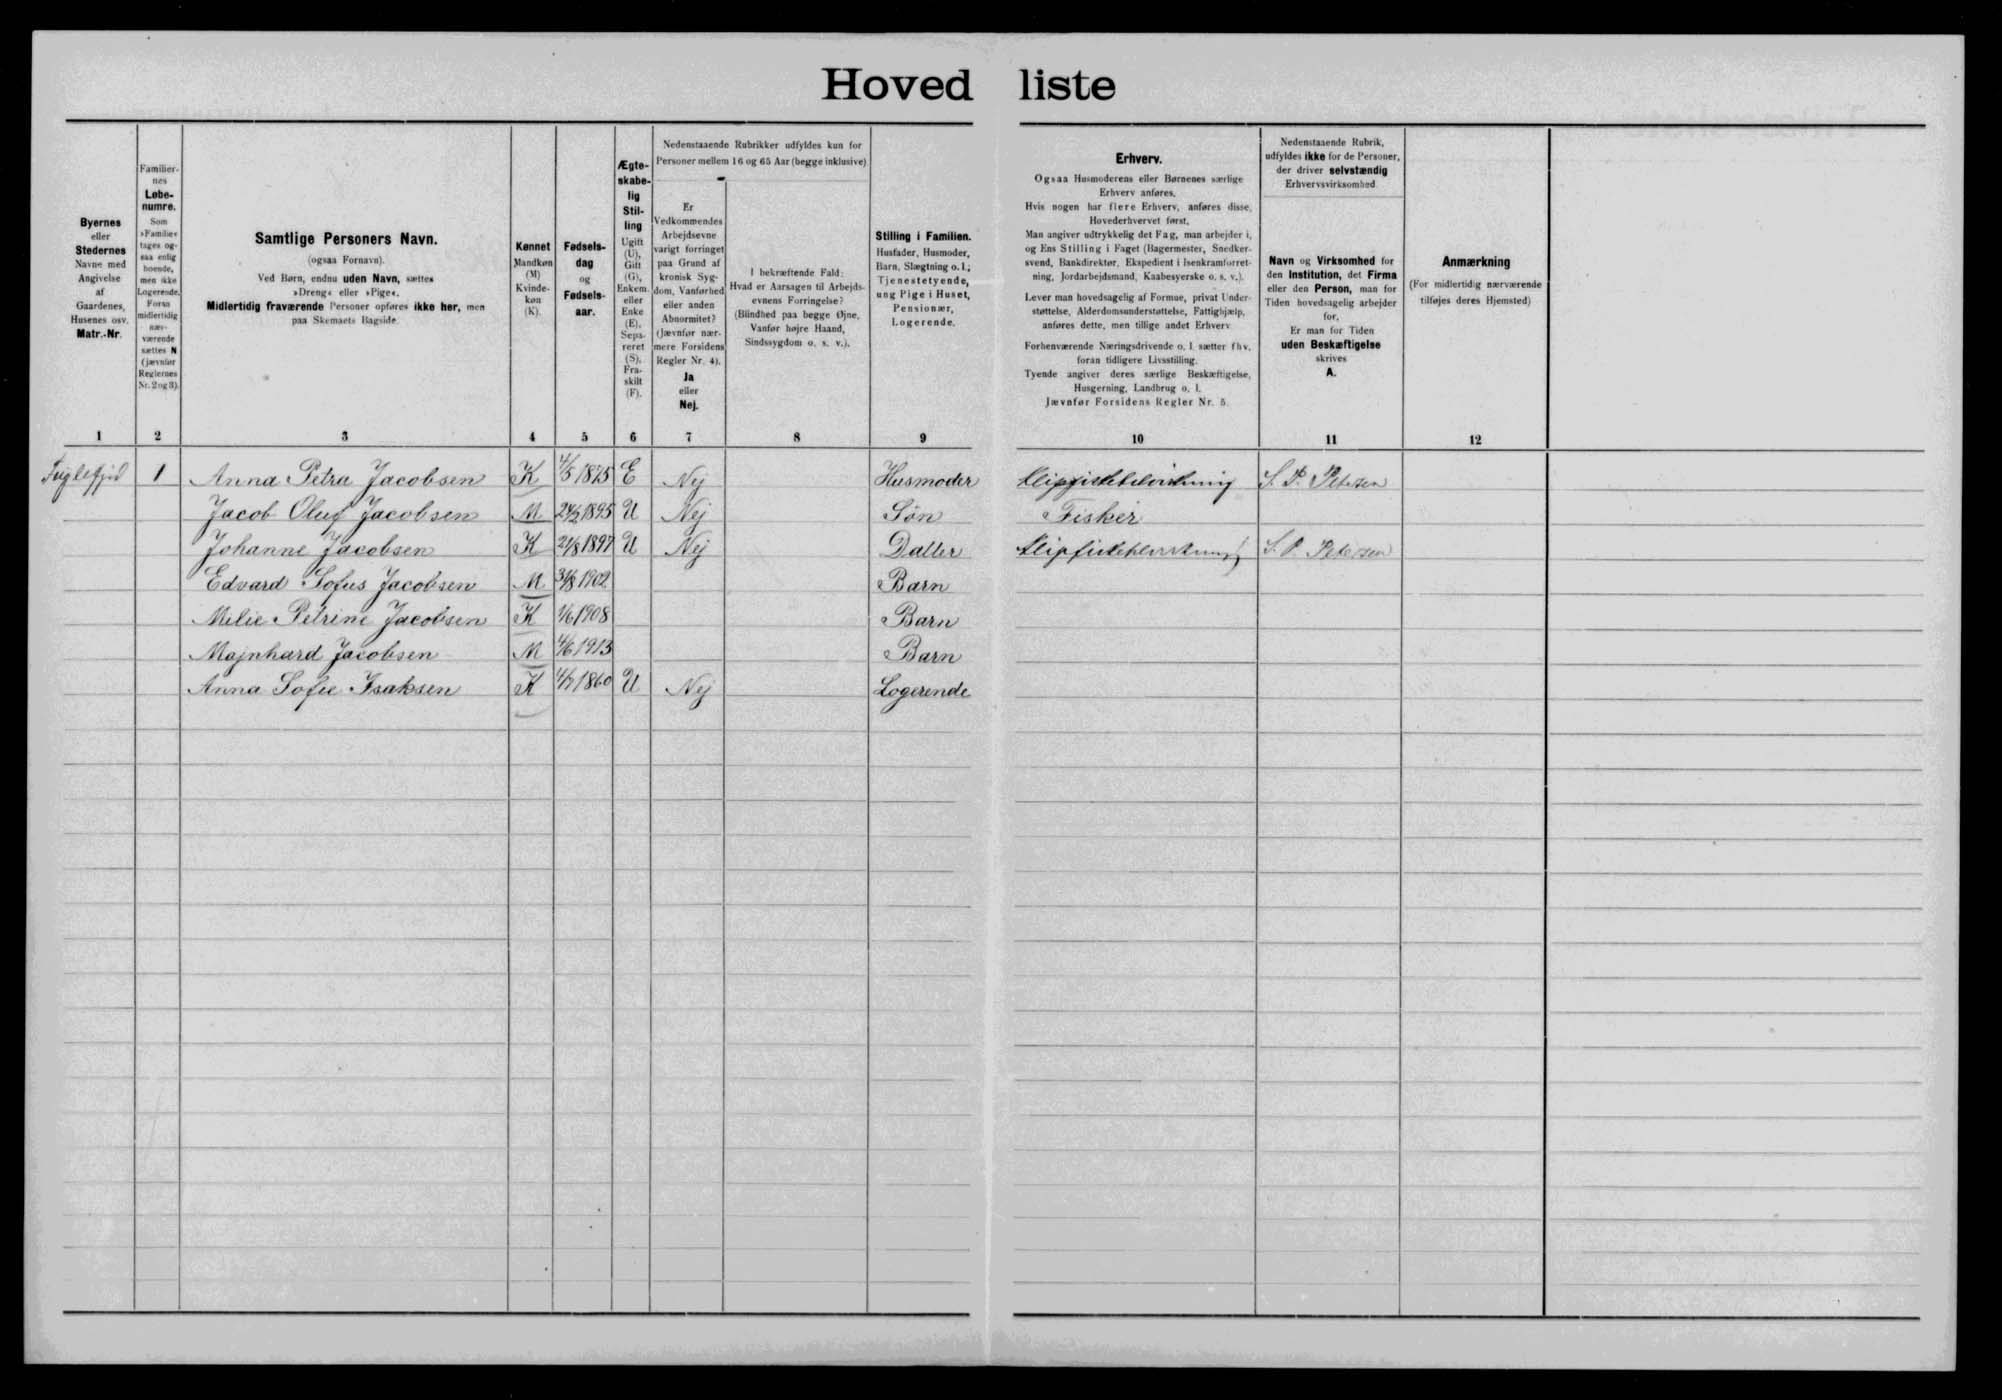 Hovedliste
Byernes
eller
Stedernes
Navne med
Angivelse
af
Gaardenes,
Husenes osv.
Matr.-Nr.
Familier-
nes
Løbe-
numre.
Som
»Familie«
tages og-
saa enlig
boende,
men ikke
Logerende.
Forsn
midlertidig
nær-
værende
sættes N
(jævnfør
Reglernes
Nr. 2 og 3).
Samtlige Personers Navn.
(ogsaa Fornavn).
Ved Børn, endnu uden Navn, sættes
»Dreng« eller »Pige«.
Midlertidig fraværende Personer opføres ikke her, men
paa Skemaets Bagside.
Kønnet
Mandkøn
(M)
Kvinde-
køn
(K).
Fødsels-
dag
og
Fødsels-
aar.
Ægte-
skabe-
lig
Stil-
ling
Ugift
(U),
Gift
(G),
Enkem.
eller
Enke
(E),
Sepa-
reret
(S),
Fra-
skilt
(F).
Nedenstaaende Rubrikker udfyldes kun for
Personer mellem 16 og 65 Aar (begge inklusive)
Er
Vedkommendes
Arbejdsevne
varigt forringet
paa Grund af
kronisk Syg-
dom, Vanførhed
eller anden
Abnormitet?
(Jævnfør nær-
mere Forsidens
Regler Nr. 4).
Ja
eller
Nej.
I bekræftende Fald:
Hvad er Aarsagen til Arbejds-
evnens Forringelse?
(Blindhed paa begge Øjne,
Vanfør højre Haand,
Sindssygdom o. s. v.).
Stilling i Familien.
Husfader, Husmoder,
Barn, Slægtning o. l.;
Tjenestetyende,
ung Pige i Huset,
Pensionær,
Logerende.
Erhverv.
Ogsaa Husmoderens eller Børnenes særlige
Erhverv anføres.
Hvis nogen har flere Erhverv, anføres disse,
Hovederhvervet først.
Man angiver udtrykkelig det Fag, man arbejder i,
og Ens Stilling i Faget (Bagermester, Snedker-
svend, Bankdirektør, Ekspedient i Isenkramforret-
ning, Jordarbejdsmand, Kaabesyerske o. s. v.).
Lever man hovedsagelig af Formue, privat Under-
støttelse, Alderdomsunderstøttelse, Fattighjælp,
anføres dette, men tillige andet Erhverv.
Forhenværende Næringsdrivende o. l. sætter fhv.
foran tidligere Livsstilling.
Tyende angiver deres særlige Beskæftigelse,
Husgerning, Landbrug o. l.
Jævnfør Forsidens Regler Nr. 5.
Nedenstaaende Rubrik,
udfyldes ikke for de Personer,
der driver selvstændig
Erhvervsvirksomhed
Navn og Virksomhed for
den Institution, det Firma
eller den Person, man for
Tiden hovedsagelig arbejder
for.
Er man for Tiden
uden Beskæftigelse
skrives
A.
Anmærkning
(For midlertidig nærværende
tilføjes deres Hjemsted)
1 2 3 4 5 6 7 8 9 10 11 12
Fuglefjid 1 Anna Petra Jacobsen K 4/5 1875 E Nej Husmoder Klipfiskebehvirkning S. P. Petersen
Jacob Oluf Jacobsen M 1895 U Nej Søn Fisker
Johanne Jacobsen K 21/8 1897 U Nej Datter S. P. Petersen
Edvard Sofus Jacobsen M 1902 Barn
Milie Petrine Jacobsen K 1/6 1908 Barn
Majnhard Jacobsen M 4/6 1913 Barn
Anna Sofie Isaksen K 1860 U Nej Logerende